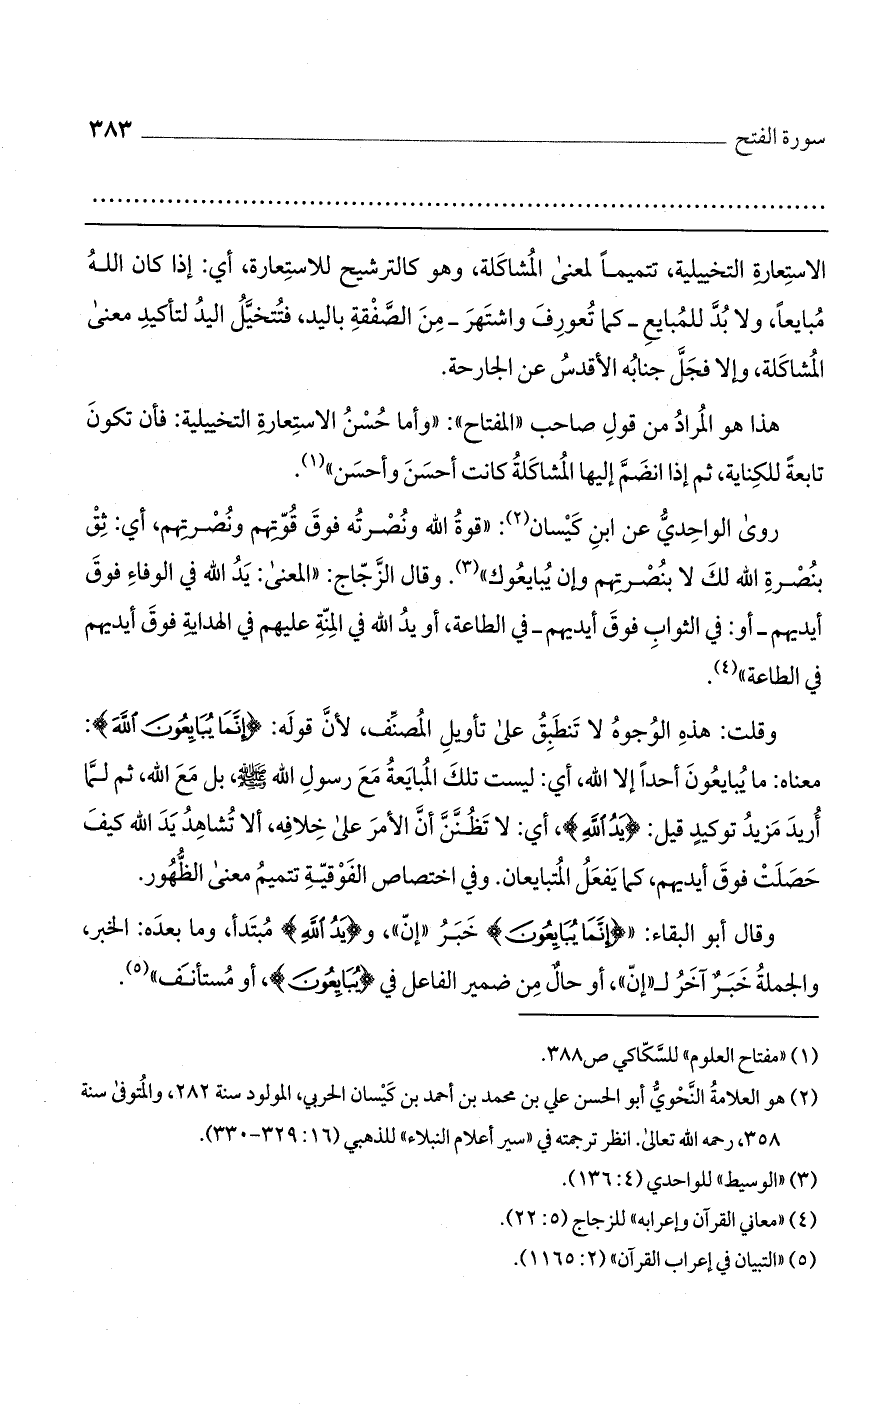 سورة الفتح ــــــــــــــــــــ ٣٨٣
........................................................................
الاستِعارةِ التخييلية، تتميماً لمعنىٰ المُشاكَلة، وهو كالترشيح للاستِعارة، أي: إذا كان اللـهُ
مُبايعاً، ولا بُدَّ للمُبايعِ ـ كما تُعورِفَ واشتَهرَ ـ مِنَ الصَّفْقةِ باليد، فتُتخيَّلُ اليدُ لتأكيدِ معنىٰ
المُشاكَلة، وإلا فجَلَّ جنابُه الأقدسُ عن الجارحة.
هذا هو المُرادُ من قولِ صاحب «المفتاح»: «وأما حُسْنُ الاستِعارةِ التخييلية: فأن تكونَ
تابعةً للكِناية، ثم إذا انضَمَّ إليها المُشاكَلةُ كانت أحسَنَ وأحسَن»(١).
روىٰ الواحِديُّ عن ابنِ كَيْسان(٢): «قوةُ الله ونُصْـرتُه فوقَ قُوّتِهم ونُصْـرتِهم، أي: ثِقْ
بنُصْـرةِ الله لكَ لا بنُصْـرتِهم وإن يُبايعُوك»(٣). وقال الزَّجّاج: «المعنىٰ: يَدُ الله في الوفاءِ فوقَ
أيديهم ـ أو: في الثوابِ فوقَ أيديهم ـ في الطاعة، أو يدُ الله في المِنّةِ عليهم في الهدايةِ فوقَ أيديهم
في الطاعة»(٤).
وقلت: هذهِ الوُجوهُ لا تَنطَبِقُ علىٰ تأويلِ المُصنِّف، لأنَّ قولَه: ﴿إِنَّمَا يُبَايِعُونَ ٱللَّهَ﴾:
معناه: ما يُبايعُونَ أحداً إلا الله، أي: ليست تلكَ المُبايَعةُ مَعَ رسولِ الله ﷺ، بل مَعَ الله، ثم لـمَّا
أُريدَ مَزيدُ توكيدٍ قيل: ﴿يَدُ ٱللَّهِ﴾، أي: لا تَظُـنَّنَّ أنَّ الأمرَ علىٰ خِلافِه، ألا تُشاهِدُ يَدَ الله كيفَ
حَصَلَتْ فوقَ أيديهم، كما يَفعَلُ المُتبايعان. وفي اختصاص الفَوْقيّةِ تتميمُ معنىٰ الظُّهُور.
وقال أبو البقاء: «﴿إِنَّمَا يُبَايِعُونَ﴾ خَبَرُ «إنّ»، و﴿يَدُ ٱللَّهِ﴾ مُبتَدأ، وما بعدَه: الخبر،
والجملةُ خَبَرٌ آخَرُ لـ«إنّ»، أو حالٌ مِن ضمير الفاعل في ﴿يُبَايِعُونَ﴾، أو مُستأنَف»(٥).
(١) «مفتاح العلوم» للسَّكّاكي ص٣٨٨.
(٢) هو العلامةُ النَّحْويُّ أبو الحسن علي بن محمد بن أحمد بن كَيْسان الحربي، المولود سنة ٢٨٢، والمُتوفىٰ سنة
٣٥٨، رحمه الله تعالىٰ. انظر ترجمته في «سير أعلام النبلاء» للذهبي (١٦: ٣٢٩-٣٣٠).
(٣) «الوسيط» للواحدي (٤: ١٣٦).
(٤) «معاني القرآن وإعرابه» للزجاج (٥: ٢٢).
(٥) «التبيان في إعراب القرآن» (٢: ١١٦٥).